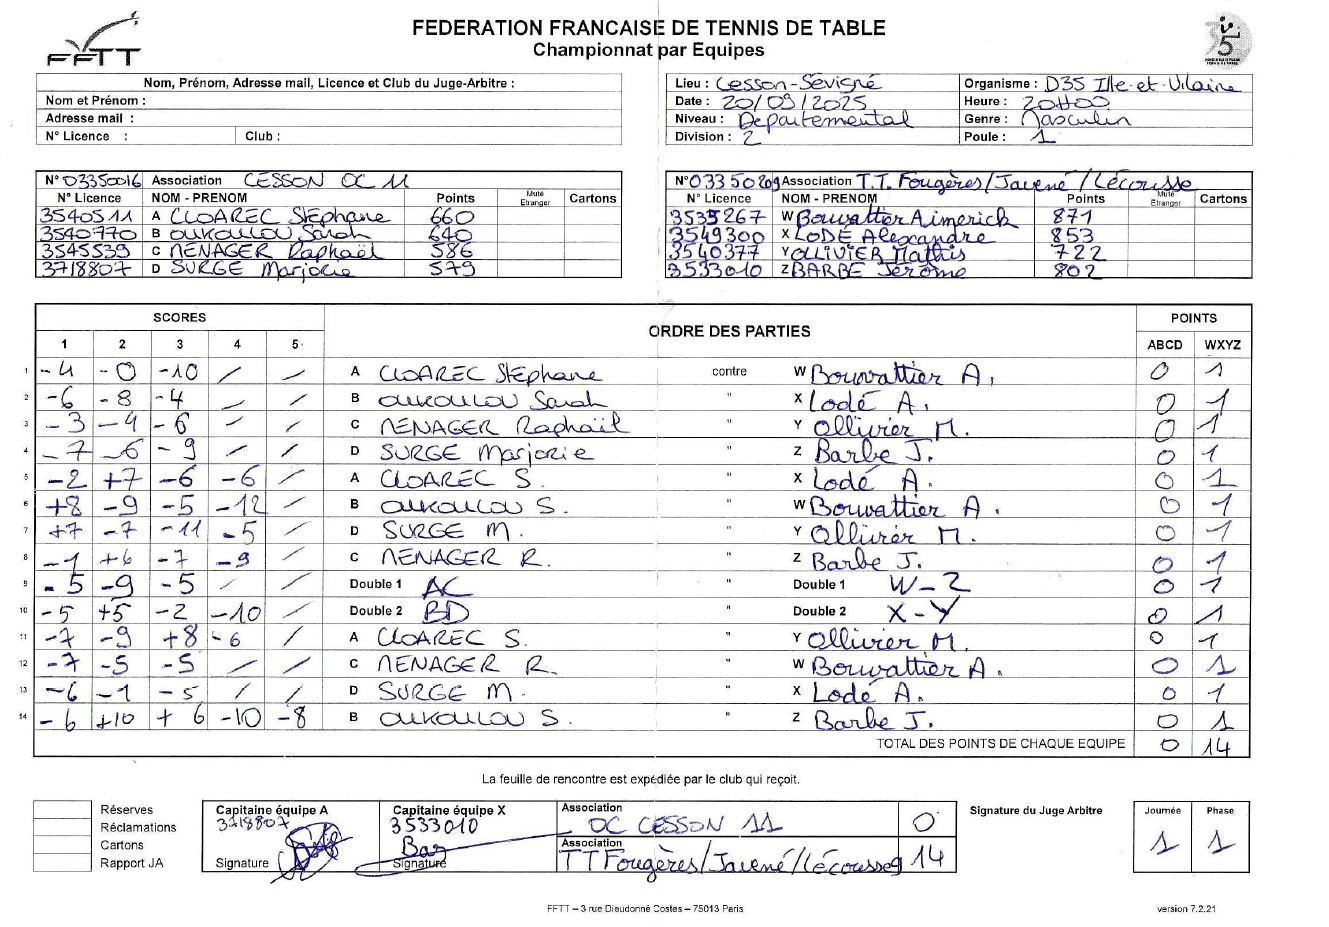 FEDERATION FRANCAISE DE TENNIS DE TABLE
Championnat par Equipes
FFTT
Nom, Prénom, Adresse mail, Licence et Club du Juge-Arbitre :
Nom et Prénom :
Adresse mail :
N° Licence : Club :
Lieu : Cesson-Sévigné Organisme : D35 Ille-et-Vilaine
Date : 20/09/2025 Heure : 20H00
Niveau : Départemental Genre : Masculin
Division : 2 Poule : 1
N° 03350016 Association CESSON OC 11
N° Licence NOM - PRENOM Points Muté Etranger Cartons
3540511 A CLOAREC Stéphane 660
3540770 B OUKOULOU Sarah 640
3545539 C MENAGER Raphaël 586
3718807 D SURGE Marjorie 579
N° 03350209 Association T.T. Fougères/Javené/Lécousse
N° Licence NOM - PRENOM Points Muté Etranger Cartons
3535267 W Bouvattier Aimerick 871
3549300 X LODÉ Alexandre 853
3540377 Y OLLIVIER Mathis 722
3533010 Z BARBE Jérôme 802
SCORES ORDRE DES PARTIES POINTS
1 2 3 4 5 ABCD WXYZ
1 -4 -0 -10 / / A CLOAREC Stéphane contre W Bouvattier A. 0 1
2 -6 -8 -4 / / B OUKOULOU Sarah " X Lodé A. 0 1
3 -3 -4 -6 / / C MENAGER Raphaël " Y Ollivier M. 0 1
4 -7 -6 -9 / / D SURGE Marjorie " Z Barbe J. 0 1
5 -2 +7 -6 -6 / A CLOAREC S. " X Lodé A. 0 1
6 +8 -9 -5 -12 / B OUKOULOU S. " W Bouvattier A. 0 1
7 +7 -7 -11 -5 / D SURGE M. " Y Ollivier M. 0 1
8 -1 +6 -7 -9 / C MENAGER R. " Z Barbe J. 0 1
9 -5 -9 -5 / / Double 1 AC " Double 1 W-Z 0 1
10 -5 +5 -2 -10 / Double 2 BD " Double 2 X-Y 0 1
11 -7 -9 +8 -6 / A CLOAREC S. " Y Ollivier M. 0 1
12 -7 -5 -5 / / C MENAGER R. " W Bouvattier A. 0 1
13 -6 -1 -5 / / D SURGE M. " X Lodé A. 0 1
14 -6 +10 +6 -10 -8 B OUKOULOU S. " Z Barbe J. 0 1
TOTAL DES POINTS DE CHAQUE EQUIPE 0 14
La feuille de rencontre est expédiée par le club qui reçoit.
Réserves
Réclamations
Cartons
Rapport JA
Capitaine équipe A
3718807
Signature
Capitaine équipe X
3533010
Bar
Signature
Association
OC CESSON 11 0
Association
TT Fougères/Javené/Lécousse 14
Signature du Juge Arbitre
Journée Phase
1 1
FFTT – 3 rue Dieudonné Costes – 75013 Paris
version 7.2.21